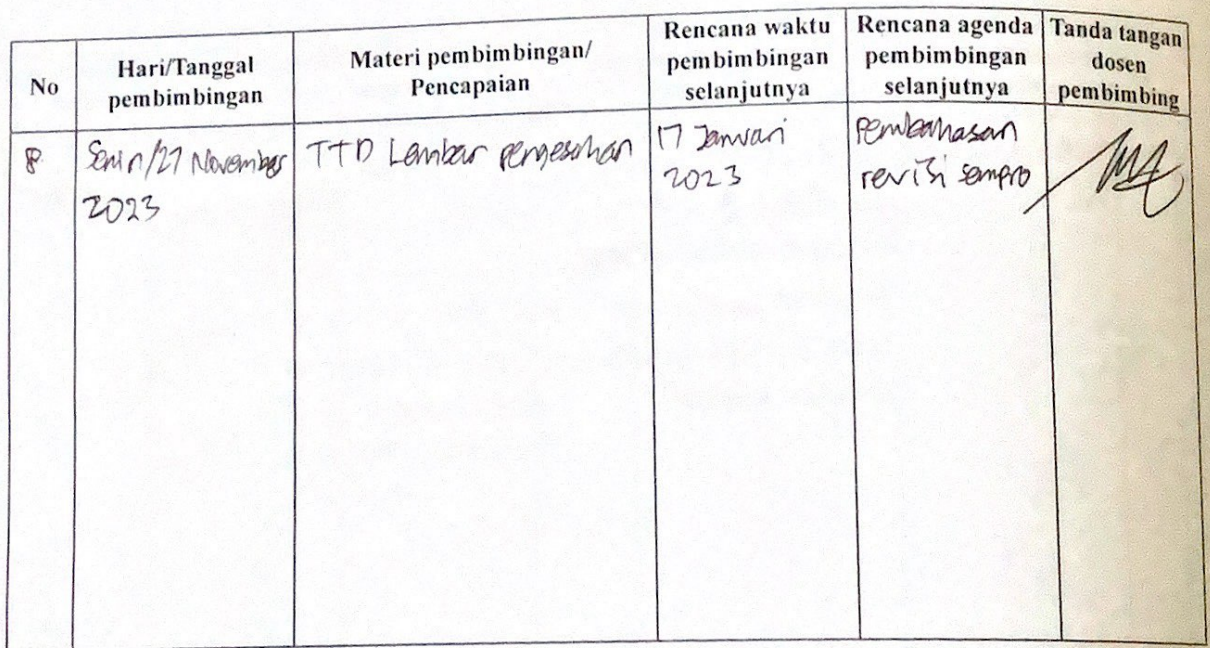 No
Hari/Tanggal
pembimbingan
Materi pembimbingan/
Pencapaian
Rencana waktu
pembimbingan
selanjutnya
Rencana agenda
pembimbingan
selanjutnya
Tanda tangan
dosen
pembimbing
8
Senin/27 November
2023
TTD Lembar pengesahan
17 Januari
2023
Pembahasan
revisi sempro